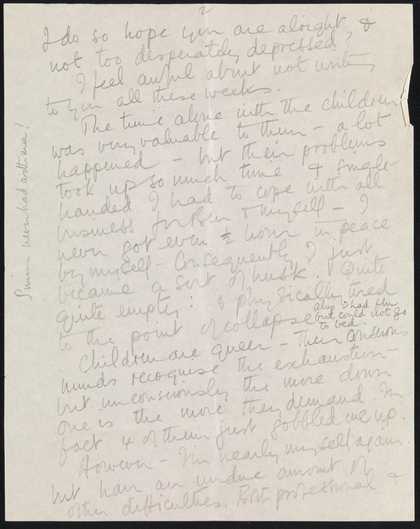 2
I do so hope you are alright, &
not too desperately depressed,
I feel awful about not writing
to you all these weeks.
The time alone with the children
was very valuable to them - a lot
happened - but their problems
took up so much time & single
handed I had to cope with all
business for Ben & myself - I
never got even ½ hour in peace
by myself - Consequently I just
became a sort of husk. Quite
quite empty: & physically tired
to the point of collapse
also I had flu
but could not go
to bed -
Children are queer - Their conscious
minds recognise the exhaustion -
but unconsciously the more down
one is the more they demand. In
fact 4 of them just gobbled me up.
However - I'm nearly myself again.
but have an undue amount of
other difficulties, both professional &
never had